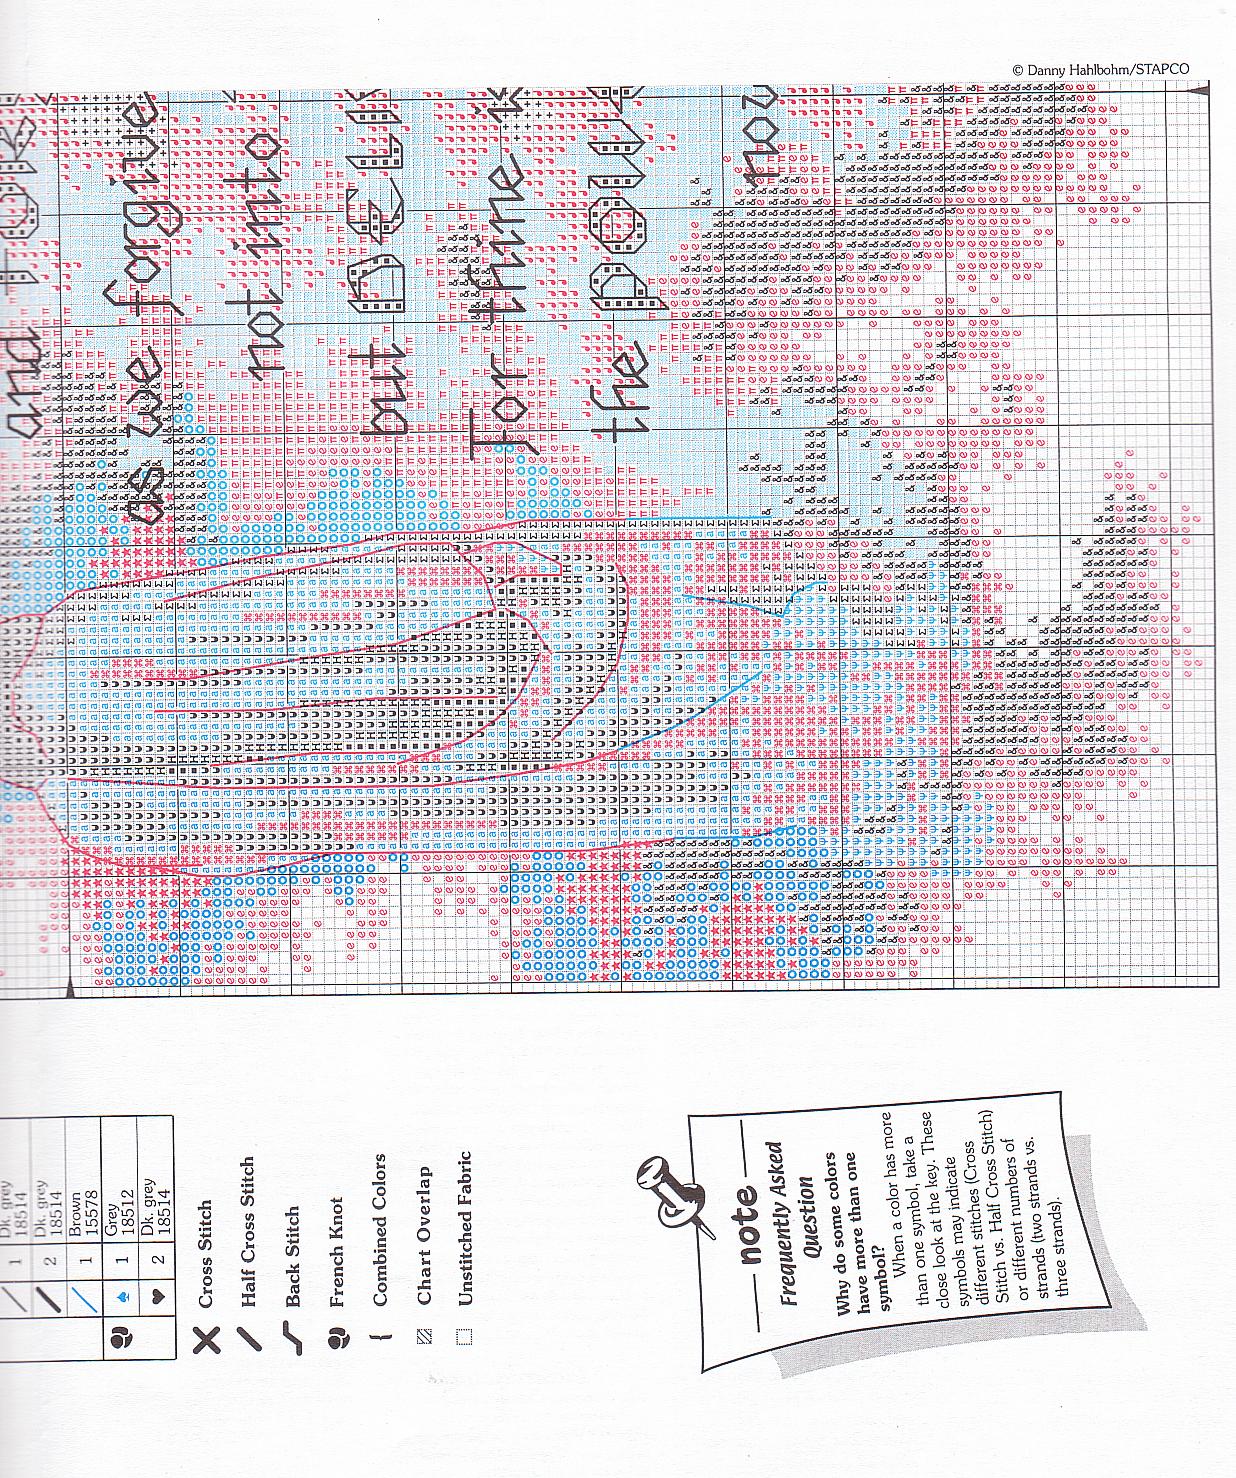 © Danny Hahlbohm/STAPCO
and
as we forgive
not into
but
For thine
the
Dk. grey
1 18514
Dk. grey
2 18514
Brown
1 15578
Grey
1 18512
Dk. grey
2 18514
Cross Stitch
Half Cross Stitch
Back Stitch
French Knot
Combined Colors
Chart Overlap
Unstitched Fabric
note
Frequently Asked
Question
Why do some colors
have more than one
symbol?
When a color has more
than one symbol, take a
close look at the key. These
symbols may indicate
different stitches (Cross
Stitch vs. Half Cross Stitch)
or different numbers of
strands (two strands vs.
three strands).